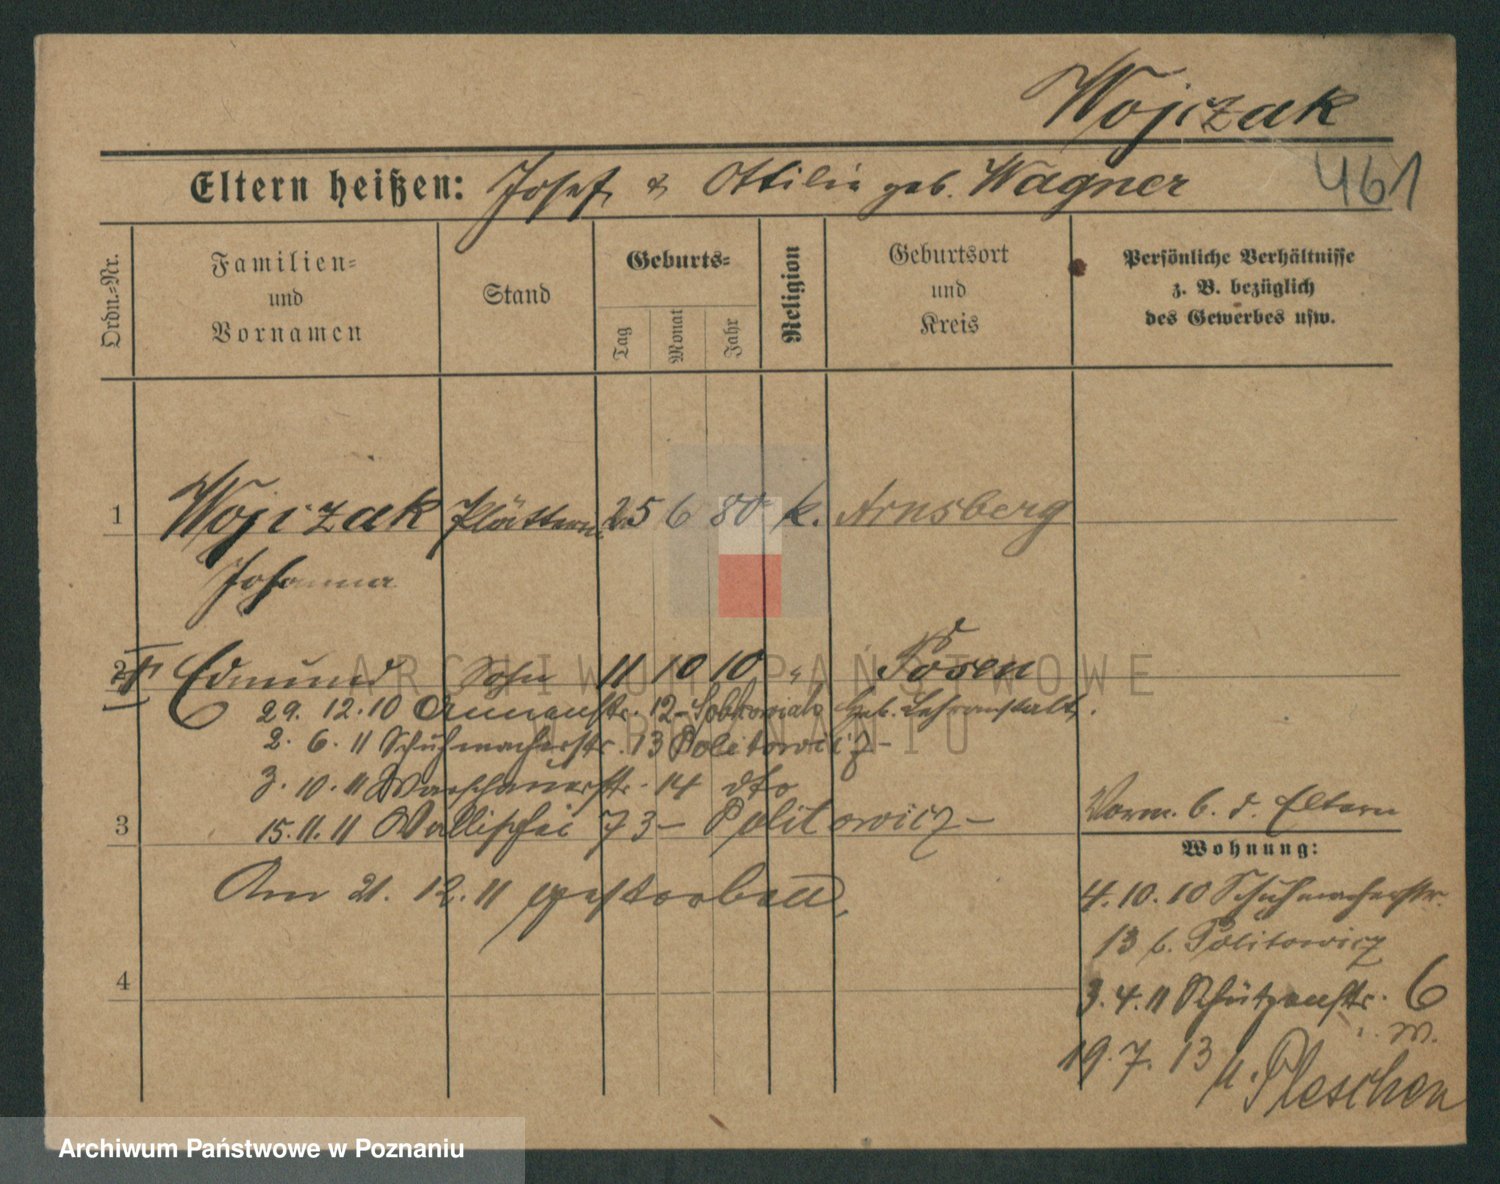 Wojczak
461
Eltern heißen: Josef & Ottilie geb. Wagner
Ordn.-Nr.
Familien-
und
Vornamen
Stand
Geburts-
Tag
Monat
Jahr
Religion
Geburtsort
und
Kreis
Persönliche Verhältnisse
z. B. bezüglich
des Gewerbes usw.
1 Wojczak Plätterin 25 6 80 k. Arnsberg
Johanna
2 Edmund Sohn 11 10 10 " Posen
29. 12. 10 Annenstr. 12 - Sobkowiak Geb. Lehranstalt.
2. 6. 11 Schuhmacherstr. 13 Politowicz -
3. 10. 11 Warschauerstr. 14 dto
3 15. 11. 11 Wallischei 73 - Politowicz -
Am 21. 12. 11 gestorben
4
Vorm. b. d. Eltern
Wohnung:
4. 10. 10 Schuhmacherstr.
13 b. Politowicz
3. 4. 11 Schützenstr. 6
19. 7. 13 n. Pleschen
ARCHIWUM PAŃSTWOWE
W POZNANIU
Archiwum Państwowe w Poznaniu